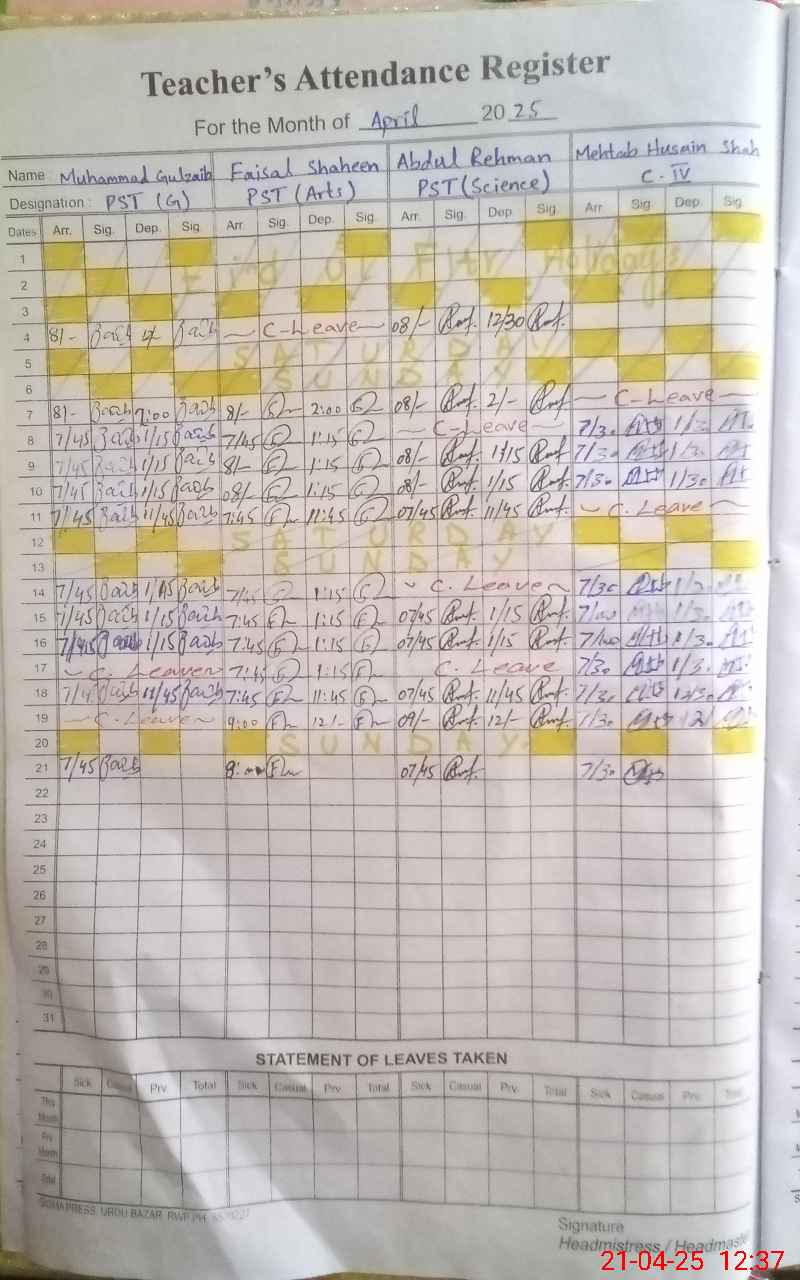 Teacher's Attendance Register
For the Month of April 2025
Name: Muhammad Gulzaib Faisal Shaheen Abdul Rehman Mehtab Husain Shah
Designation: PST (G) PST (Arts) PST (Science) C. IV
Dates Arr. Sig. Dep. Sig. Arr. Sig. Dep. Sig. Arr. Sig. Dep. Sig. Arr. Sig. Dep. Sig.
1
2 Eid Ul Fitr Holidays
3
4 8/- C-Leave 08/- 12/30
5 SATURDAY
6 SUNDAY
7 8/- 2:00 8/- 2:00 08/- 2/- C-Leave
8 7/45 1/15 7/45 1:15 C-Leave 7/30 1/30
9 7/45 1/15 8/- 1:15 08/- 1/15 7/30 1/30
10 7/45 1/15 08/- 1:15 08/- 1/15 7/30 1/30
11 7/45 11/45 7:45 11:45 07/45 11/45 C. Leave
12 SATURDAY
13 SUNDAY
14 7/45 1/15 7/45 1:15 C. Leave 7/30
15 7/45 1/15 7:45 1:15 07/45 1/15
16 7/45 1/15 7:45 1:15 07/45 1/15 1/30
17 C. Leave 7:45 1:15 C. Leave 7/30 1/30
18 7/45 11/45 7:45 11:45 07/45 11/45 7/30 12/30
19 C. Leave 9:00 12/- 09/- 12/- 7/30 12/
20 SUNDAY
21 7/45 8:00 07/45 7/30
22
23
24
25
26
27
28
29
30
31
STATEMENT OF LEAVES TAKEN
Sick Casual Prv. Total Sick Casual Prv. Total Sick Casual Prv. Total Sick Casual Prv. Total
This Month
Prv. Month
Total
PRESS URDU BAZAR RWP.PH
Signature
Headmistress / Headmaste
21-04-25 12:37